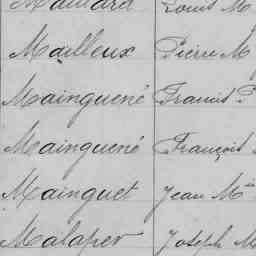 Maillard Louis M
Mailleux Pierre M
Mainguené Francis P
Mainguené François
Mainguet Jean M
Malaper Joseph M